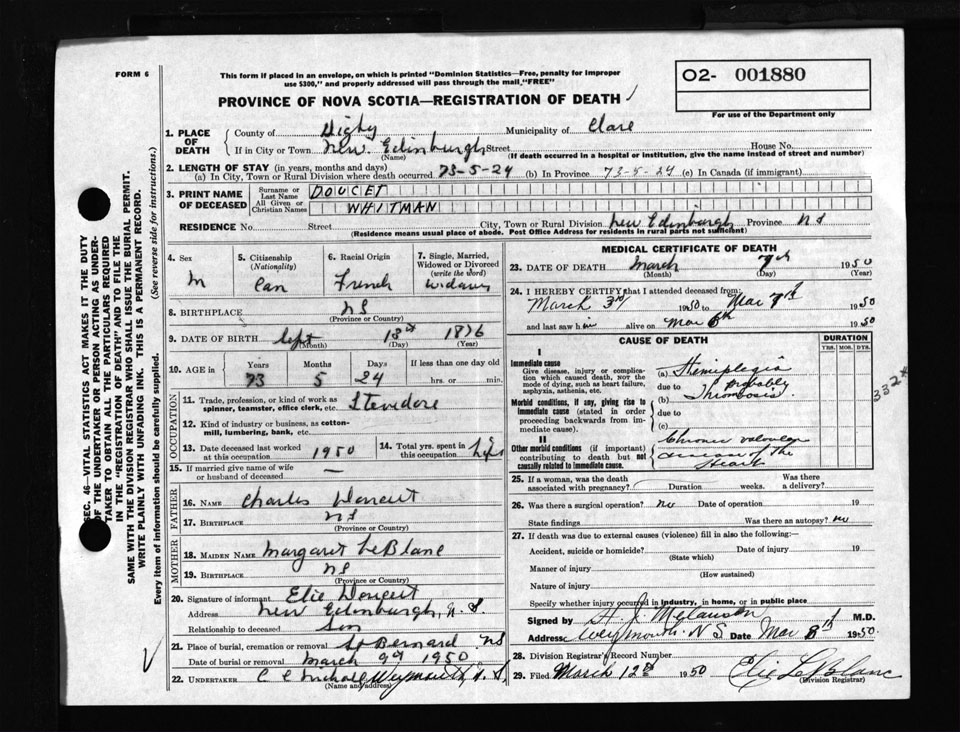 FORM 6
This form if placed in an envelope, on which is printed "Dominion Statistics—Free, penalty for improper
use $300," and properly addressed will pass through the mail "FREE"
O2- 001880
For use of the Department only
PROVINCE OF NOVA SCOTIA—REGISTRATION OF DEATH
1. PLACE OF DEATH County of Digby Municipality of Clare
If in City or Town New Edinburgh Street House No.
(Name) (If death occurred in a hospital or institution, give the name instead of street and number)
2. LENGTH OF STAY (in years, months and days)
(a) In City, Town or Rural Division where death occurred 73-5-24 (b) In Province 73-5-24 (c) In Canada (if immigrant)
3. PRINT NAME OF DECEASED Surname or Last Name DOUCET
All Given or Christian Names WHITMAN
RESIDENCE No. Street City, Town or Rural Division New Edinburgh Province N S
(Residence means usual place of abode. Post Office Address for residents in rural parts not sufficient)
4. Sex M
5. Citizenship (Nationality) Can
6. Racial Origin French
7. Single, Married, Widowed or Divorced (write the word)
8. BIRTHPLACE N S
(Province or Country)
9. DATE OF BIRTH Sept 13th 1876
(Month) (Day) (Year)
10. AGE in Years 73 Months 5 Days 24 If less than one day old hrs. or min.
OCCUPATION
11. Trade, profession, or kind of work as spinner, teamster, office clerk, etc. Stevedore
12. Kind of industry or business, as cotton-mill, lumbering, bank, etc.
13. Date deceased last worked at this occupation 1950
14. Total yrs. spent in this occupation Life
15. If married give name of wife or husband of deceased —
FATHER
16. NAME Charles Doucet
17. BIRTHPLACE N S
(Province or Country)
MOTHER
18. MAIDEN NAME Margaret LeBlanc
19. BIRTHPLACE N S
(Province or Country)
20. Signature of informant Elie Doucet
Address New Edinburgh, N. S.
Relationship to deceased Son
21. Place of burial, cremation or removal St Bernard NS
Date of burial or removal March 9th 1950
22. UNDERTAKER C E Weymouth N. S.
(Name and address)
MEDICAL CERTIFICATE OF DEATH
23. DATE OF DEATH March 7th 1950
(Month) (Day) (Year)
24. I HEREBY CERTIFY that I attended deceased from:
March 3rd 1950 to Mar 7th 1950
and last saw him alive on Mar 6th 1950
CAUSE OF DEATH
DURATION
YRS. MOS. DYS.
I
Immediate cause
Give disease, injury or complication which caused death, not the mode of dying, such as heart failure, asphyxia, asthenia, etc.
(a) Hemiplegia
due to Probably
(b) Thrombosis
Morbid conditions, if any, giving rise to immediate cause (stated in order proceeding backwards from immediate cause).
due to
(c)
II
Other morbid conditions (if important) contributing to death but not causally related to immediate cause.
Chronic valvular
disease of the
Heart
332*
25. If a woman, was the death associated with pregnancy? Duration weeks. Was there a delivery?
26. Was there a surgical operation? No Date of operation 19
State findings Was there an autopsy? no
27. If death was due to external causes (violence) fill in also the following:—
Accident, suicide or homicide? Date of injury 19
(State which)
Manner of injury
(How sustained)
Nature of injury
Specify whether injury occurred in industry, in home, or in public place
Signed by H. J. Melanson M.D.
Address Weymouth N S Date Mar 8th 1950
28. Division Registrar's Record Number
29. Filed March 12th 1950 Elie LeBlanc
(Division Registrar)
SEC. 46—VITAL STATISTICS ACT MAKES IT THE DUTY
OF THE UNDERTAKER OR PERSON ACTING AS UNDER-
TAKER TO OBTAIN ALL THE PARTICULARS REQUIRED
IN THE "REGISTRATION OF DEATH" AND TO FILE THE
SAME WITH THE DIVISION REGISTRAR WHO SHALL ISSUE THE BURIAL PERMIT.
WRITE PLAINLY WITH UNFADING INK. THIS IS A PERMANENT RECORD.
Every item of information should be carefully supplied. (See reverse side for instructions.)